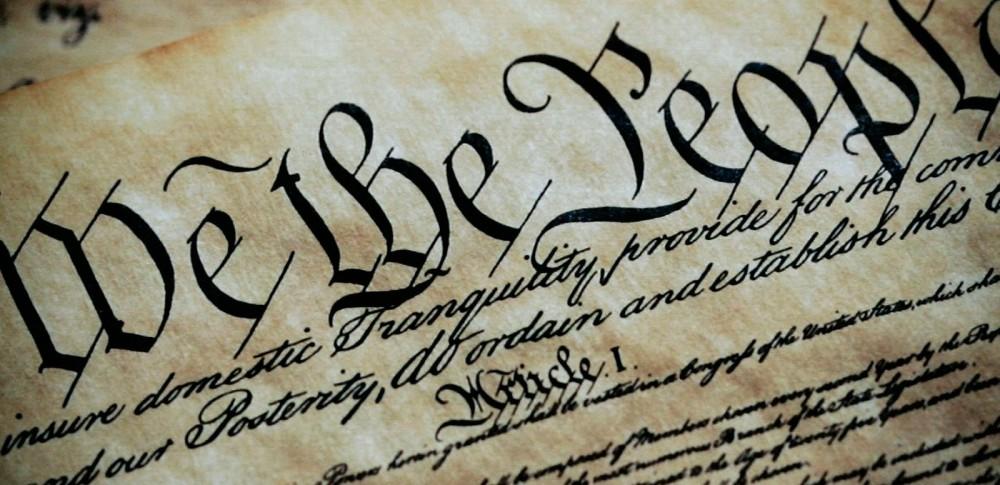 We the People
insure domestic Tranquility, provide for the com
and our Posterity, do ordain and establish this
Article. I.
Powers herein granted shall be vested in a Congress of the United States, which sha
all be composed of Members chosen every second Year by the Peo
of the most numerous Branch of the State Legislature.
to the Age of twenty five Years, and been